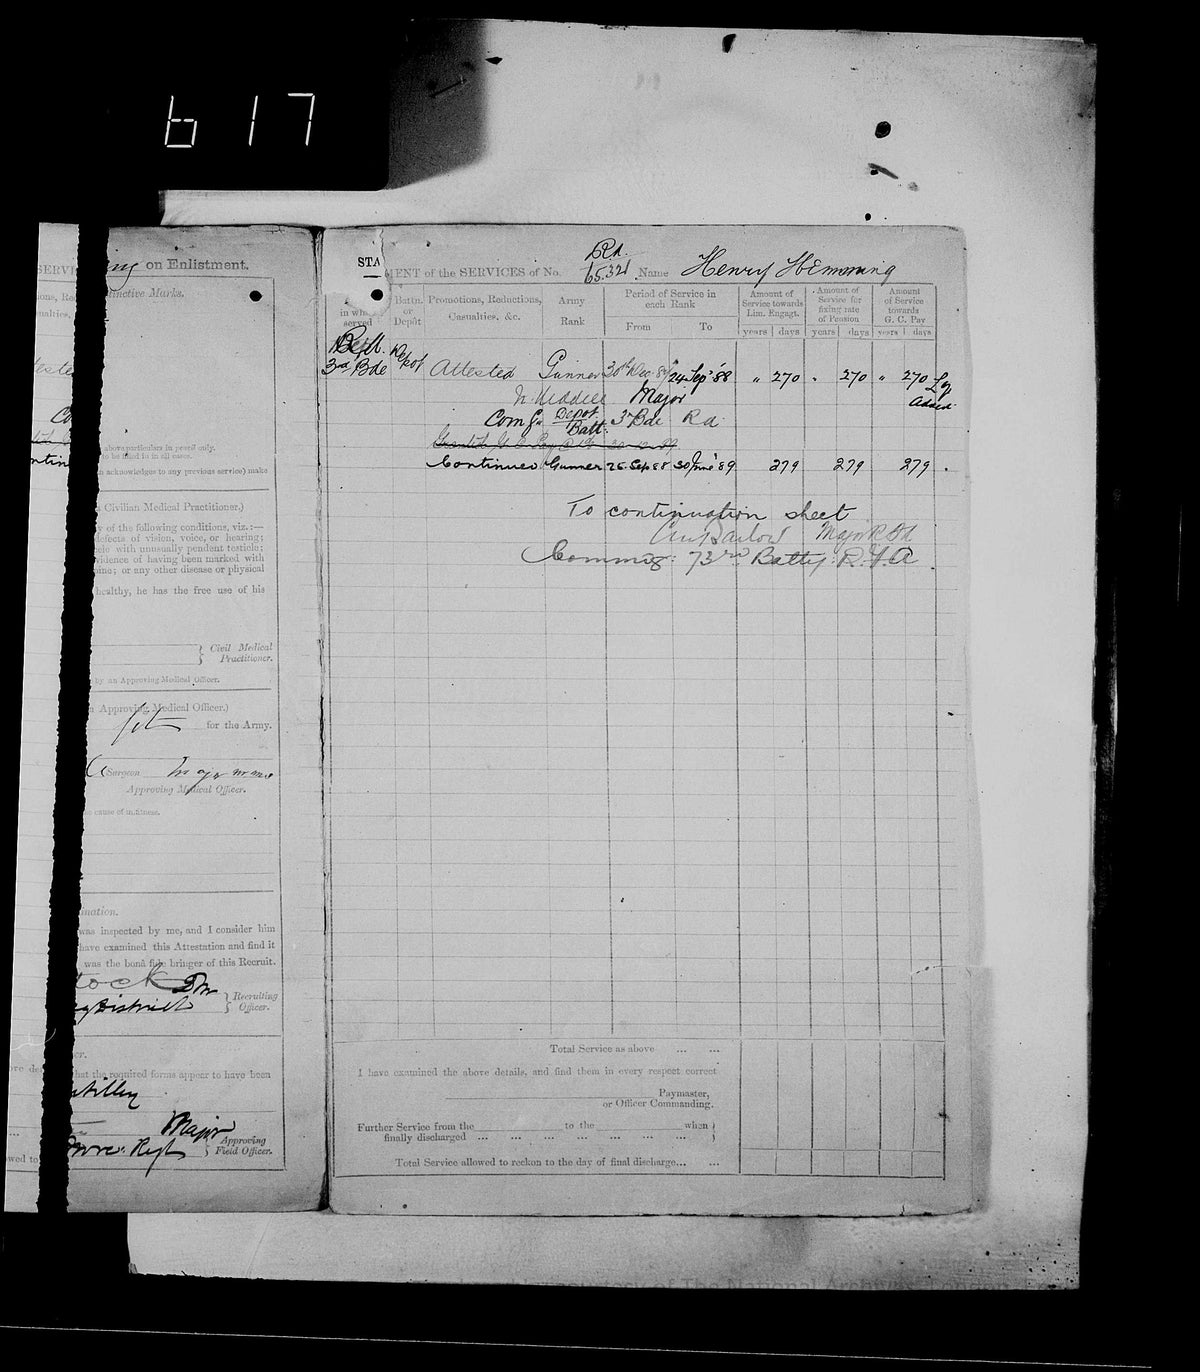 617
SERVI
ions, Re
sualties,
ng on Enlistment.
tinctive Marks.
above particulars in pencil only.
to be filled in in all cases.
acknowledge to any previous service) make
a Civilian Medical Practitioner.)
y of the following conditions, viz.:—
defects of vision, voice, or hearing;
cele with unusually pendent testicle;
vidence of having been marked with
ine; or any other disease or physical
healthy, he has the free use of his
Civil Medical
Practitioner.
by an Approving Medical Officer.
Approving Medical Officer.)
fit for the Army.
Surgeon
Approving Medical Officer.
cause of unfitness.
mation.
was inspected by me, and I consider him
have examined this Attestation and find it
was the bonâ fide bringer of this Recruit.
tock
District
Recruiting
Officer.
that the required forms appear to have been
tillery
Major
Regt
Approving
Field Officer.
STATEMENT of the SERVICES of No. Rd. 65.321 Name Henry Hemming
in which served
Battn. or Depôt
Promotions, Reductions, Casualties, &c.
Army Rank
Period of Service in each Rank
From To
Amount of Service towards Lim. Engagt.
years days
Amount of Service for fixing rate of Pension
years days
Amount of Service towards G. C. Pay
years days
3rd Bde Depot Attested Gunner 30th Dec 87 24 Sep '88 " 270 " 270 " 270
Major
Comg. Depot Batt: 3rd Bde Rd
Continues Gunner 26 Sep 88 30 June 89 279 279 279
To continuation sheet
Major R Fd
Commg: 73rd Batty: R.F.A.
Total Service as above ... ...
I have examined the above details, and find them in every respect correct
Paymaster,
or Officer Commanding.
Further Service from the to the when
finally discharged ... ... ... ... ... ... ...
Total Service allowed to reckon to the day of final discharge... ...
of The National Archives